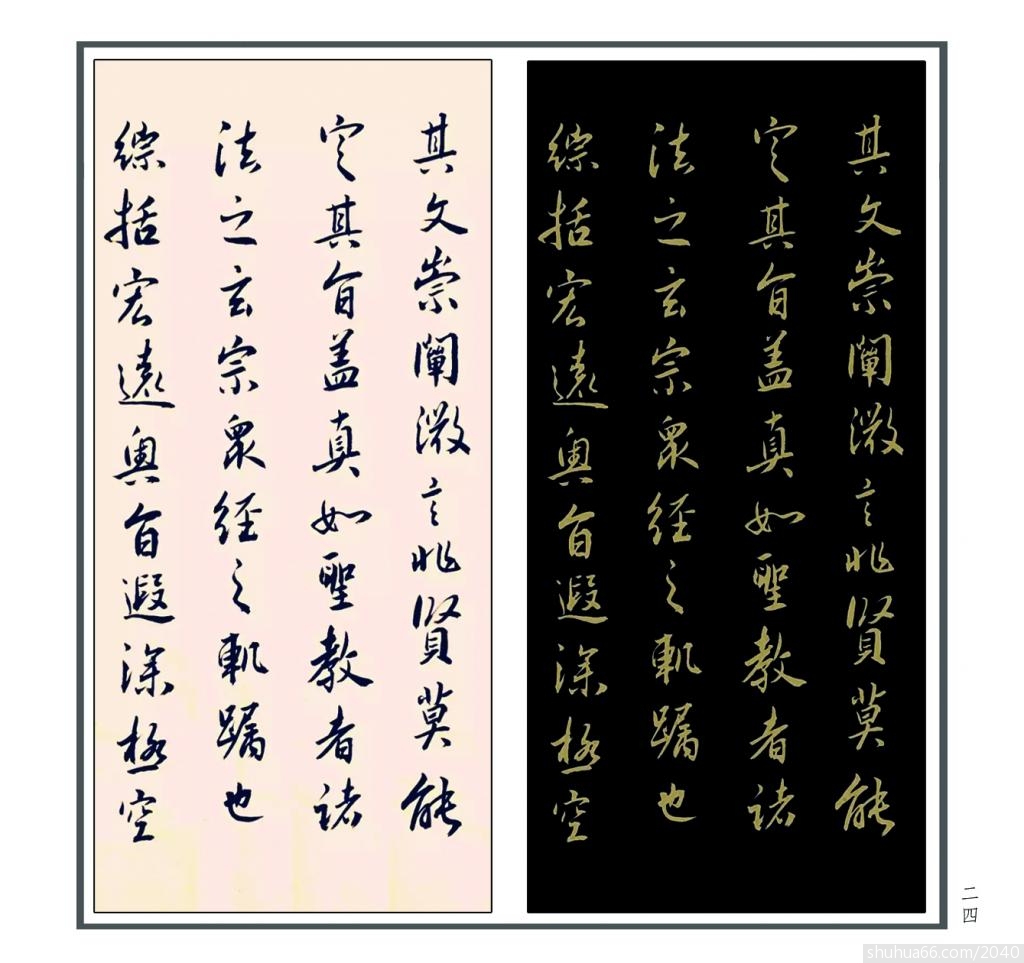 其文崇闡微言非賢莫能
定其旨盖真如聖教者諸
法之玄宗眾經之軌躅也
綜括宏遠奧旨遐深極空
其文崇闡微言非賢莫能
定其旨盖真如聖教者諸
法之玄宗眾經之軌躅也
綜括宏遠奧旨遐深極空
二四
shuhua66.com/2040